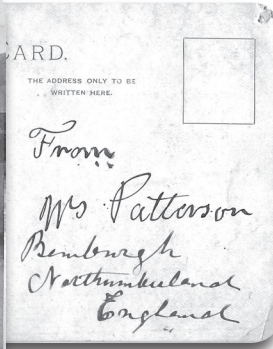 CARD.
THE ADDRESS ONLY TO BE
WRITTEN HERE.
From
Mrs Patterson
Bamburgh
Northumberland
England